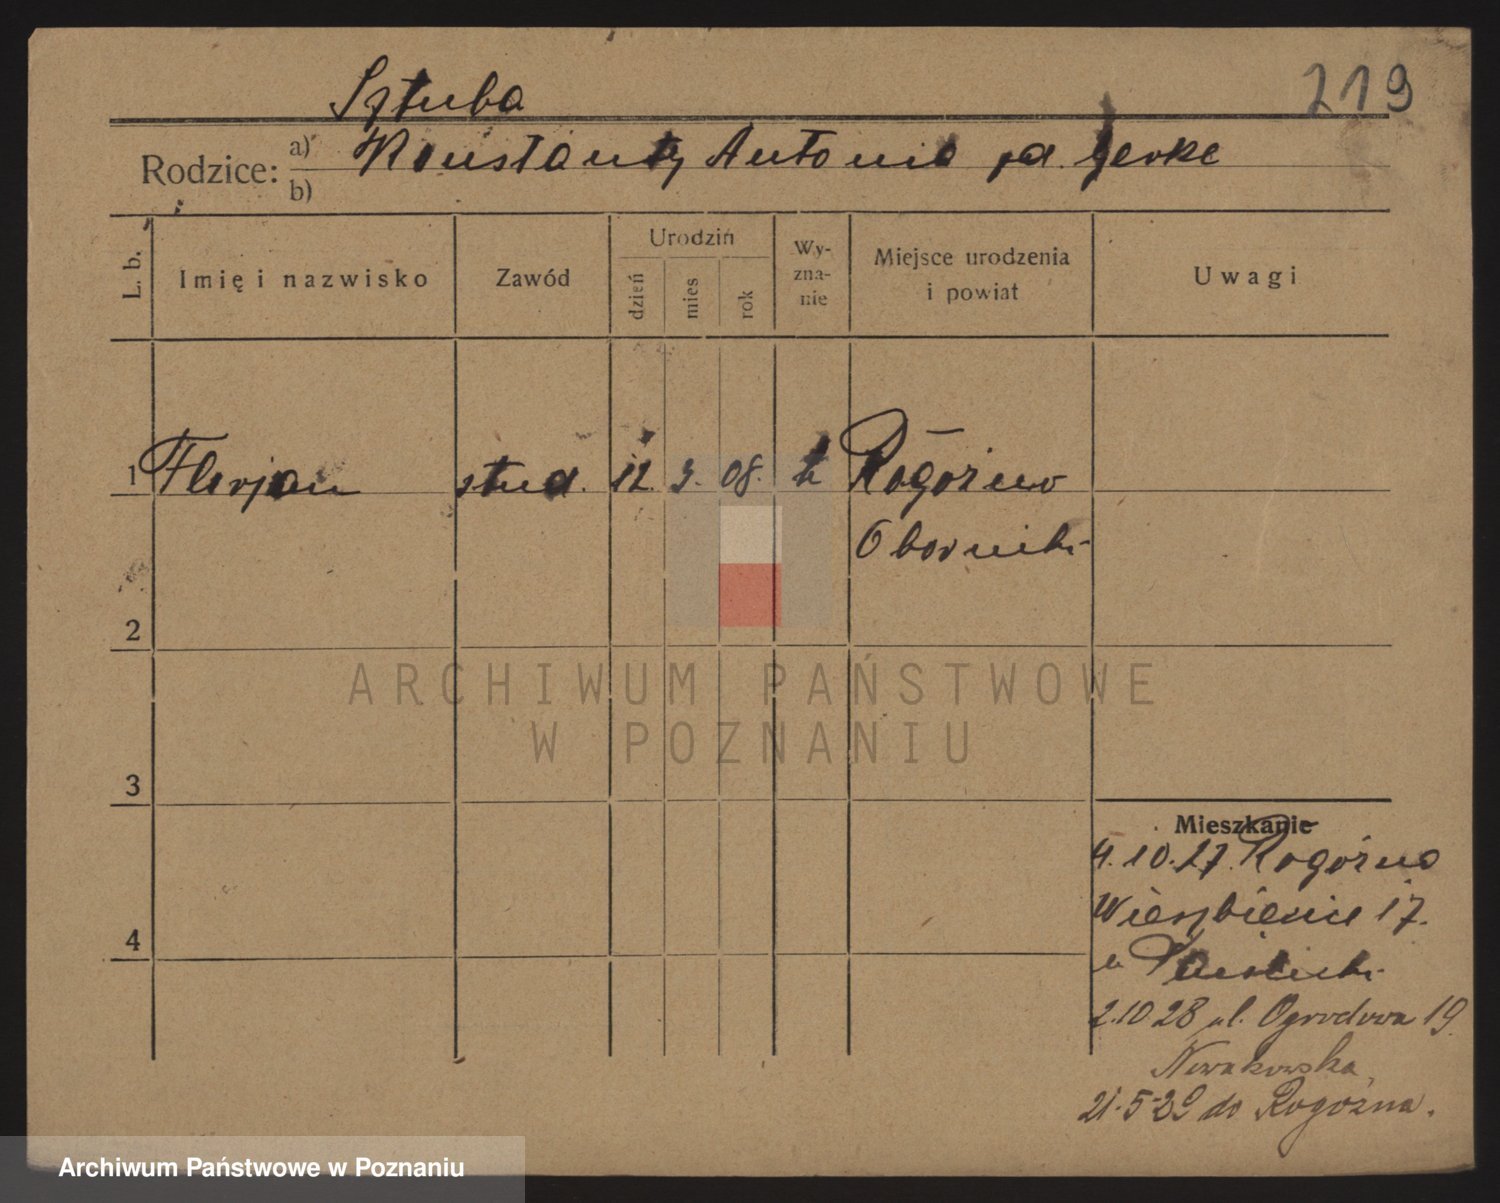 219
Sztuba
Rodzice: a) Konstanty Antonia
b)
L. b.
Imię i nazwisko
Zawód
Urodziń
dzień
mies
rok
Wy-
zna-
nie
Miejsce urodzenia
i powiat
Uwagi
1 Florjan stud. 12. 3. 08. k Rogoźno
Oborniki
2
3
4
ARCHIWUM PAŃSTWOWE
W POZNANIU
Mieszkanie
4.10.27. Rogoźno
Wierzbięcice 17.
u
2.10 28 ul. Ogrodowa 19.
Nowakowska
21-5-29 do Rogoźna.
Archiwum Państwowe w Poznaniu